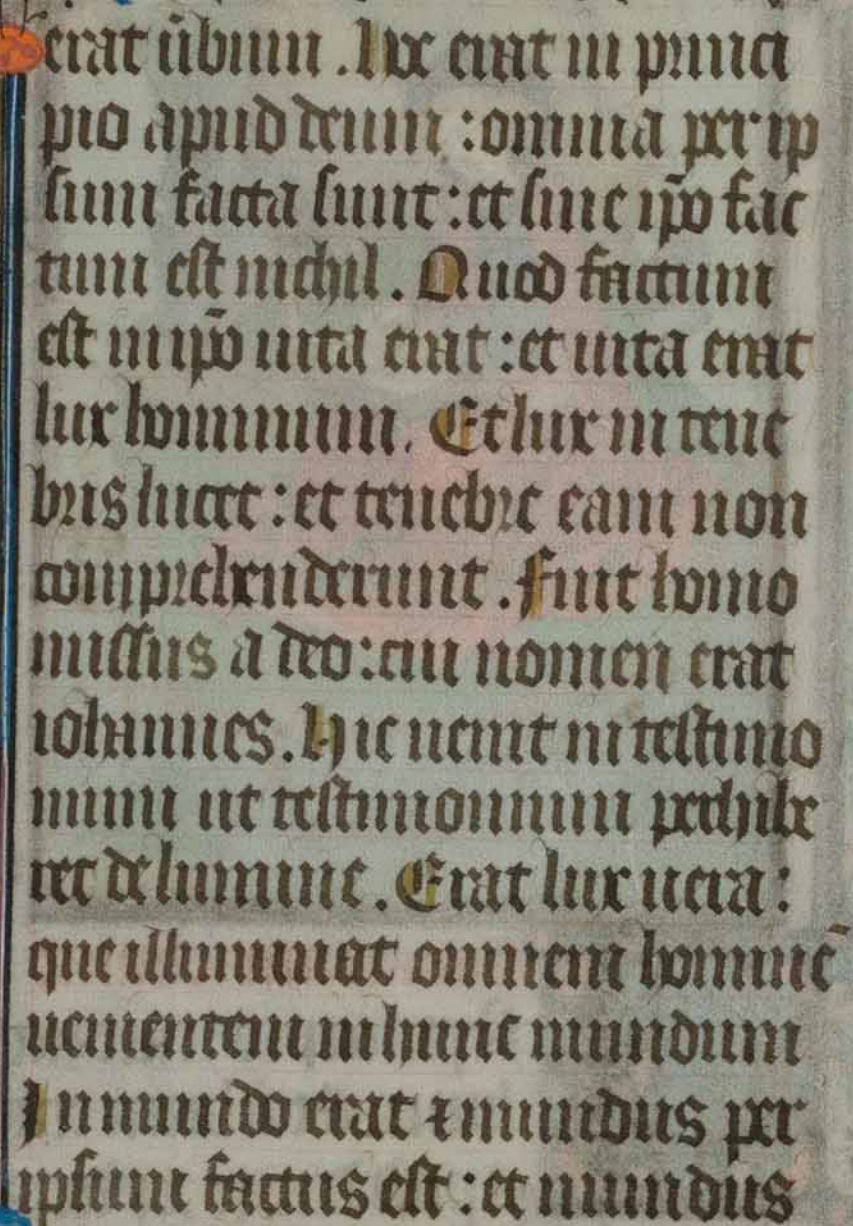 erat ūbum . hoc erat in princi
pio apud deum : omnia per ip
sum facta sunt : et sine ip̄o fac
tum est nichil . Quod factum
est in ip̄o uita erat : et uita erat
lux hominum . Et lux in tene
bris lucet : et tenebre eam non
comprehenderunt . fuit homo
missus a deo : cui nomen erat
iohannes . Hic uenit in testimo
nium ut testimonium perhibe
ret de lumine . Erat lux uera :
que illuminat omnem hominē
uenientem in hunc mundum
In mundo erat ⁊ mundus per
ipsum factus est : et mundus